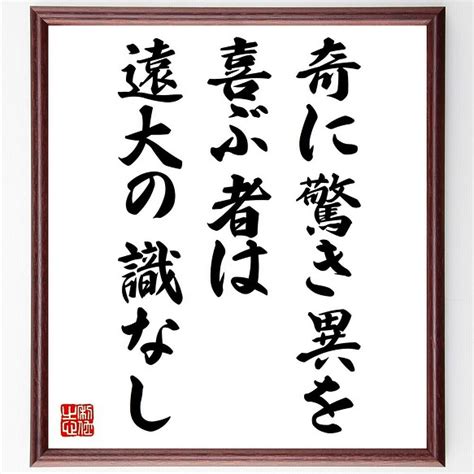 奇に驚き異を
喜ぶ者は
遠大の識なし